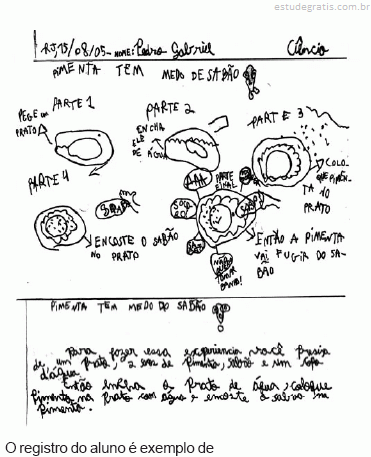 estudegratis.com.br
RJ,15/08/05- NOME: Pedro Gabriel Ciência
PIMENTA TEM MEDO DE SABÃO
PARTE 1
PEGE UM
PRATO
PARTE 2
ENCHA
ELE
DE ÁGUA
PARTE 3
COLO
QUE PIMEN
TA NO
PRATO
PARTE 4
ENCOSTE O SABÃO
NO PRATO
PARTE
FINAL
AAA
SOCO
RRO
NÃO
QUERO
TOMAR
BANHO!
ENTÃO A PIMENTA
VAI FUGIR DO SA-
BÃO
PIMENTA TEM MEDO DO SABÃO
Para fazer essa experiencia você precisa
de um prato, de pimenta, sabão e um copo
d'água.
Então encha o prato de água, coloque
pimenta no prato com água e encoste o sabão na
pimenta.
O registro do aluno é exemplo de